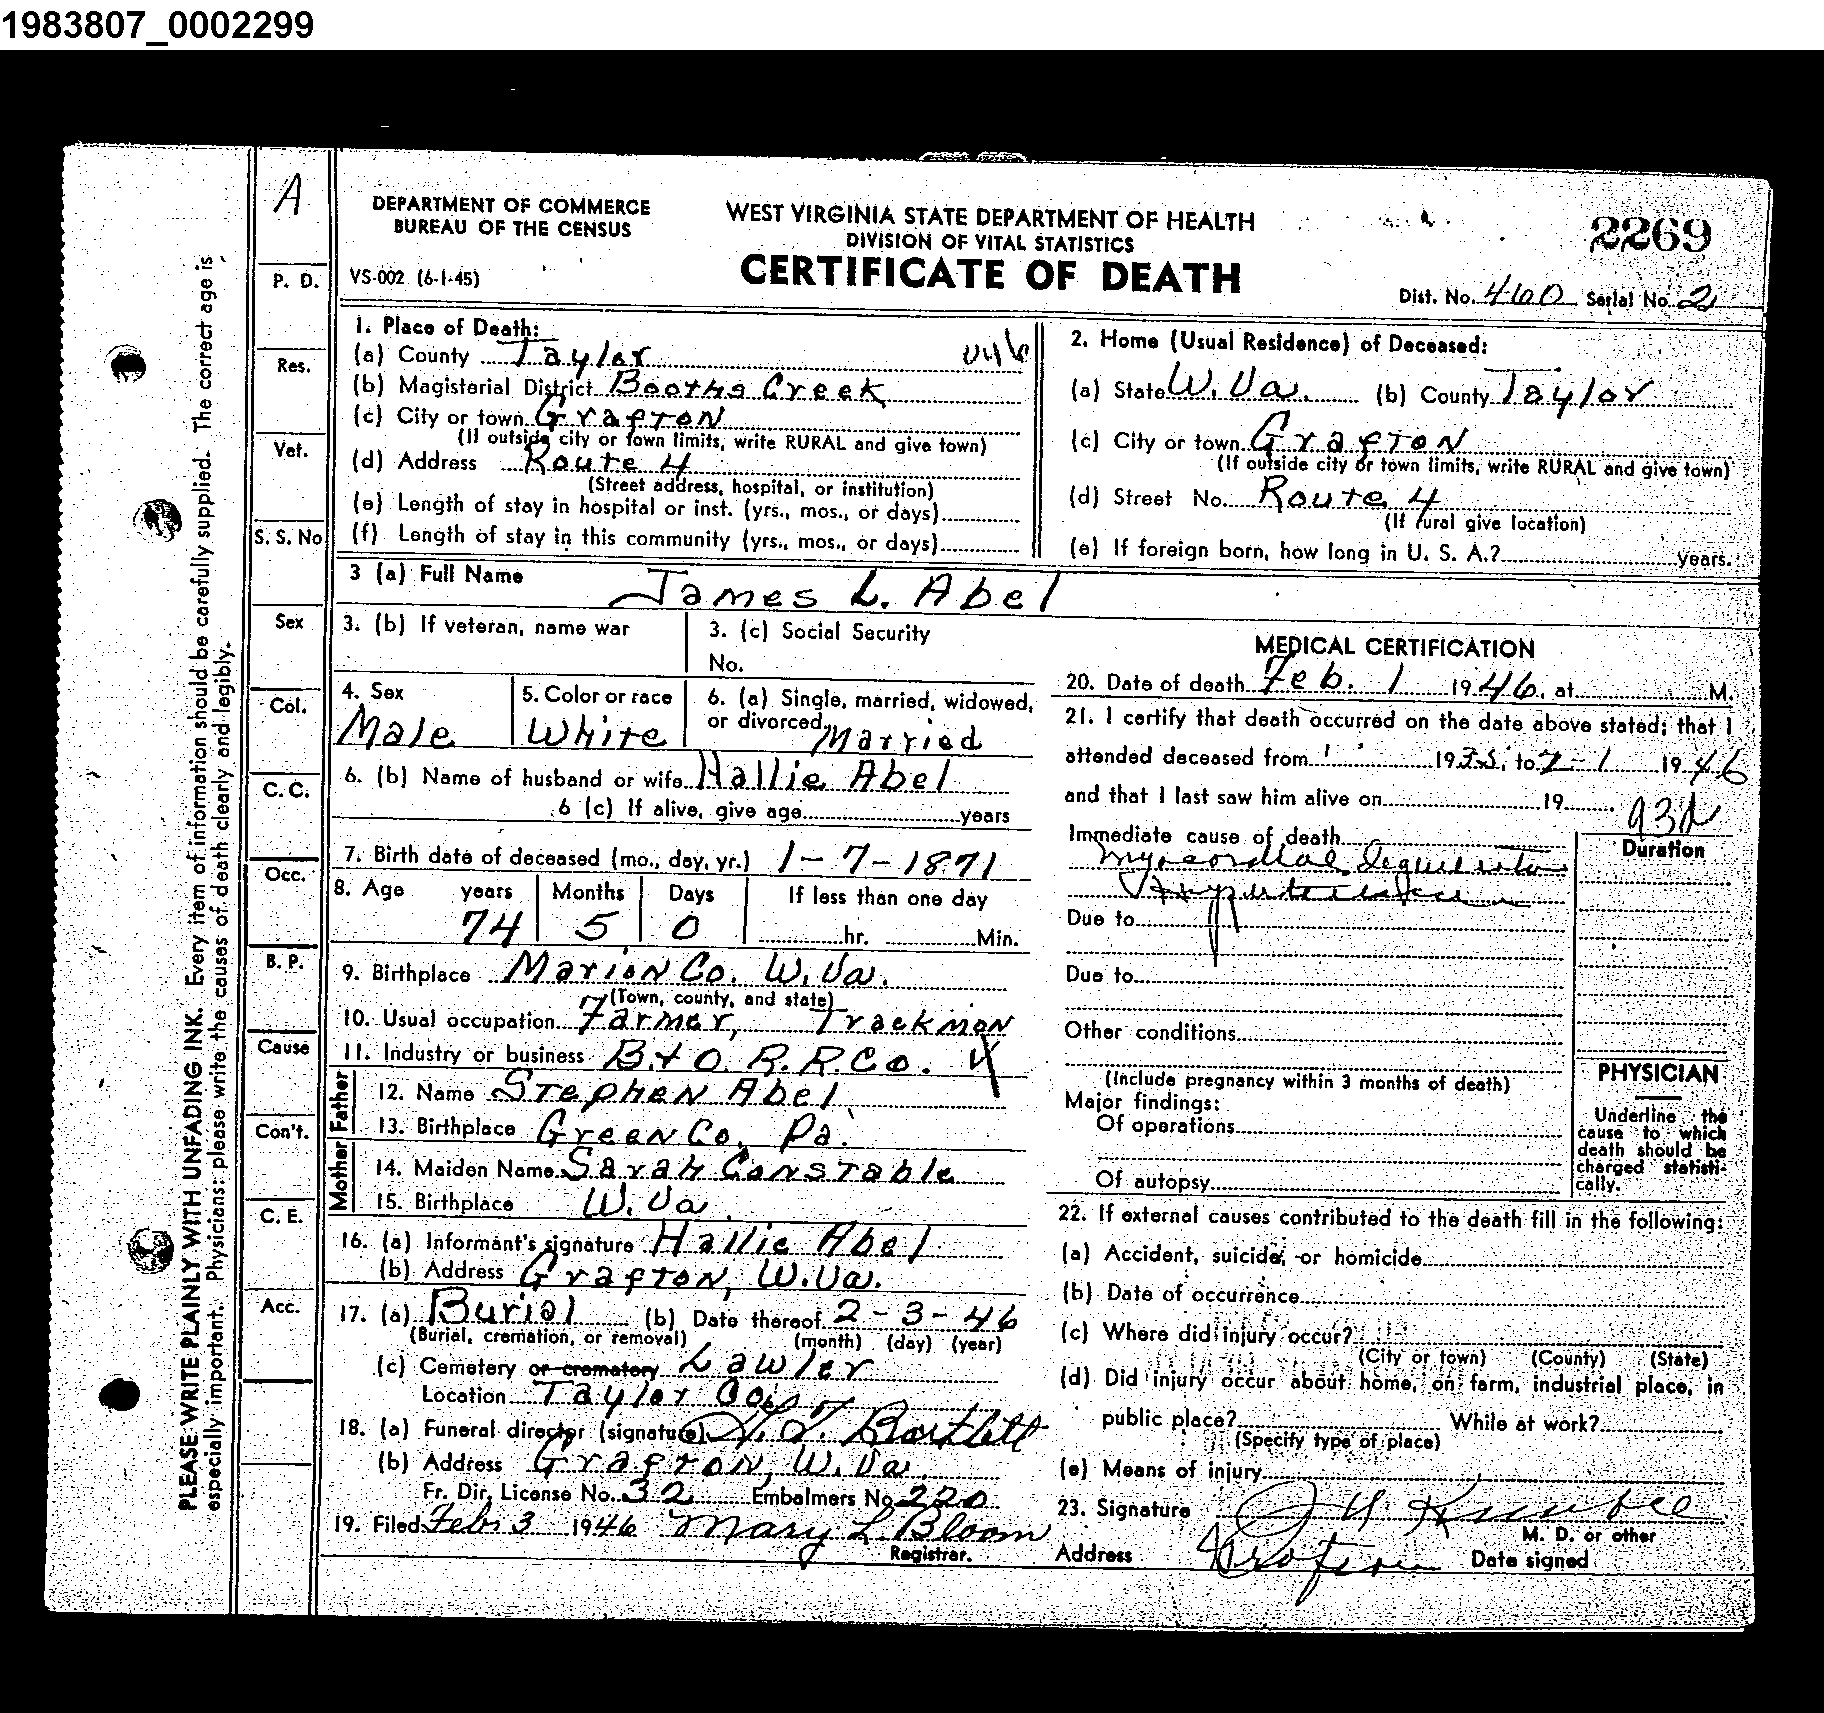 1983807_0002299
A
DEPARTMENT OF COMMERCE
BUREAU OF THE CENSUS
WEST VIRGINIA STATE DEPARTMENT OF HEALTH
DIVISION OF VITAL STATISTICS
CERTIFICATE OF DEATH
2269
VS-002 (6-1-45)
Dist. No. 460 Serial No. 2
PLEASE WRITE PLAINLY WITH UNFADING INK. Every item of information should be carefully supplied. The correct age is
especially important. Physicians: please write the causes of death clearly and legibly.
P. D.
Res.
Vet.
S. S. No
Sex
Col.
C. C.
Occ.
B. P.
Cause
Con't.
C. E.
Acc.
1. Place of Death:
(a) County Taylor 046
(b) Magisterial District Booths Creek
(c) City or town Grafton
(If outside city or town limits, write RURAL and give town)
(d) Address Route 4
(Street address, hospital, or institution)
(e) Length of stay in hospital or inst. (yrs., mos., or days)
(f) Length of stay in this community (yrs., mos., or days)
2. Home (Usual Residence) of Deceased:
(a) State W. Va. (b) County Taylor
(c) City or town Grafton
(If outside city or town limits, write RURAL and give town)
(d) Street No. Route 4
(If rural give location)
(e) If foreign born, how long in U. S. A.? years.
3 (a) Full Name James L. Abel
3. (b) If veteran, name war
3. (c) Social Security
No.
4. Sex
Male
5. Color or race
White
6. (a) Single, married, widowed,
or divorced Married
6. (b) Name of husband or wife Hallie Abel
6 (c) If alive, give age years
7. Birth date of deceased (mo., day, yr.) 1-7-1871
8. Age years Months Days If less than one day
74 5 0 hr. Min.
9. Birthplace Marion Co. W. Va.
(Town, county, and state)
10. Usual occupation Farmer, Trackman
11. Industry or business B+O R.R.Co.
Father
12. Name Stephen Abel
13. Birthplace Green Co. Pa.
Mother
14. Maiden Name Sarah Constable
15. Birthplace W. Va.
16. (a) Informant's signature Hallie Abel
(b) Address Grafton, W. Va.
17. (a) Burial (b) Date thereof 2-3-46
(Burial, cremation, or removal) (month) (day) (year)
(c) Cemetery or crematory Lawler
Location Taylor Co.
18. (a) Funeral director (signature) Bartlett
(b) Address Grafton, W. Va.
Fr. Dir. License No. 32 Embalmers No. 220
19. Filed Feb 3 1946 Mary L Bloom
Registrar.
MEDICAL CERTIFICATION
20. Date of death Feb. 1 1946, at M.
21. I certify that death occurred on the date above stated; that I
attended deceased from 1935, to 2-1 1946
and that I last saw him alive on 19
Immediate cause of death
Myocardial
Hypertension
Due to
Due to
Other conditions
(Include pregnancy within 3 months of death)
Major findings:
Of operations
Of autopsy
93d
Duration
PHYSICIAN
Underline the
cause to which
death should be
charged statisti-
cally.
22. If external causes contributed to the death fill in the following:
(a) Accident, suicide, or homicide
(b) Date of occurrence
(c) Where did injury occur?
(City or town) (County) (State)
(d) Did injury occur about home, on farm, industrial place, in
public place? While at work?
(Specify type of place)
(e) Means of injury
23. Signature
M. D. or other
Address Grafton Date signed